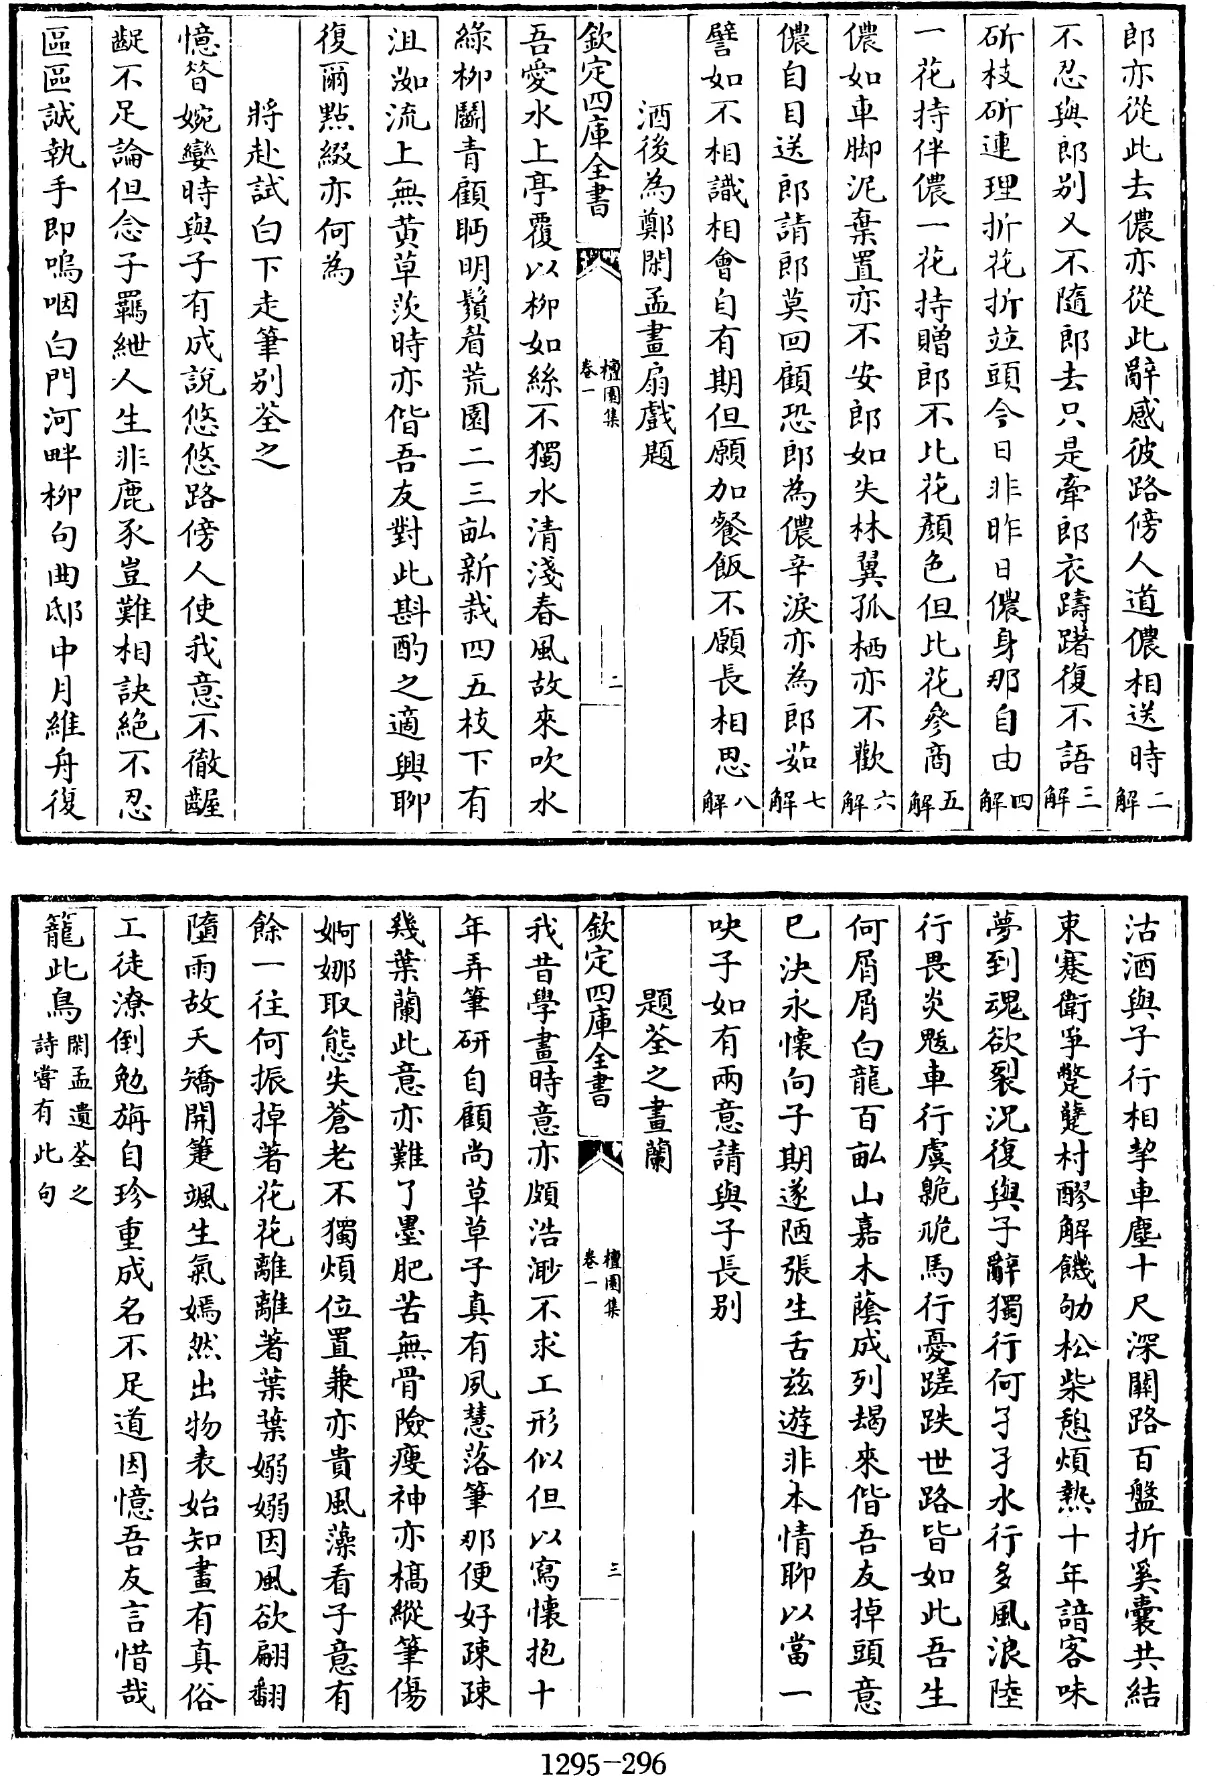 郎亦從此去儂亦從此辭感彼路傍人道儂相送時二解
不忍與郎別又不隨郎去只是牽郎衣躊躇復不語三解
斫枝斫連理折花折並頭今日非昨日儂身那自由四解
一花持伴儂一花持贈郎不比花顏色但比花參商五解
儂如車脚泥棄置亦不安郎如失林翼孤栖亦不歡六解
儂自目送郎請郎莫回顧恐郎為儂辛淚亦為郎茹七解
譬如不相識相會自有期但願加餐飯不願長相思八解
酒後為鄭閑孟畫扇戲題
欽定四庫全書
檀園集
卷一
二
吾愛水上亭覆以柳如絲不獨水清淺春風故來吹水
綠柳鬭青顧眄明鬚眉荒園二三畝新栽四五枝下有
沮洳流上無黄草茨時亦偕吾友對此斟酌之適興聊
復爾點綴亦何為
將赴試白下走筆别荃之
憶昔婉孌時與子有成說悠悠路傍人使我意不徹齷
齪不足論但念子羈紲人生非鹿豕豈難相訣絶不忍
區區誠執手即嗚咽白門河畔柳句曲邸中月維舟復
沽酒與子行相挈車塵十尺深闗路百盤折奚囊共結
束蹇衛爭蹩躠村醪解饑劬松柴憩煩熱十年諳客味
夢到魂欲裂況復與子辭獨行何孑孑水行多風浪陸
行畏炎魃車行虞臲卼馬行憂蹉跌世路皆如此吾生
何屑屑白龍百畝山嘉木蔭成列朅來偕吾友掉頭意
已決永懷向子期遂陋張生舌兹遊非本情聊以當一
吷子如有兩意請與子長别
題荃之畫蘭
欽定四庫全書
檀園集
卷一
三
我昔學畫時意亦頗浩渺不求工形似但以寫懷抱十
年弄筆研自顧尚草草子真有夙慧落筆那便好疎疎
幾葉蘭此意亦難了墨肥苦無骨險瘦神亦槁縱筆傷
婀娜取態失蒼老不獨煩位置兼亦貴風藻看子意有
餘一往何振掉著花花離離著葉葉嫋嫋因風欲翩翻
墮雨故夭矯開箑颯生氣嫣然出物表始知畫有真俗
工徒潦倒勉旃自珍重成名不足道因憶吾友言惜哉
籠此鳥閑孟遺荃之詩嘗有此句
1295-296